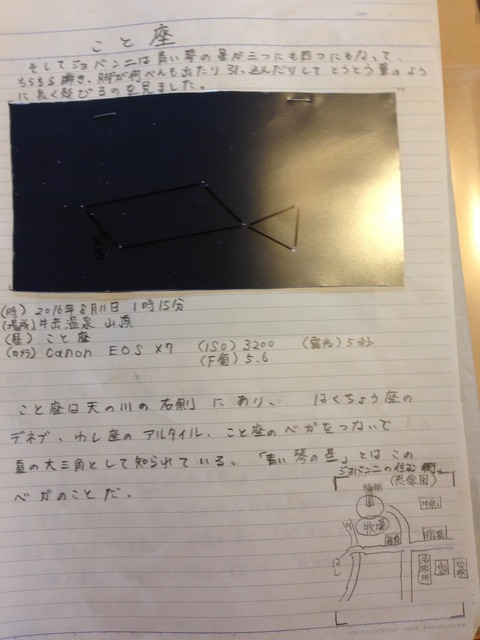 こと座
そしてジョバンニは青い琴の星が三つにも四つにもなって、
ちらちら瞬き、脚が何べんも出たり引っ込んだりしてとうとう蕈のよう
に長く延びるのを見ました。
(時) 2016年8月11日 1時15分
(場所) 牛岳温泉 山頂
(星) こと座
(カメラ) Canon EOS X7 (ISO) 3200 (露光) 5秒
(F値) 5.6
こと座は天の川の右側にあり、はくちょう座の
デネブ、わし座のアルタイル、こと座のベガをつないで
夏の大三角として知られている。「青い琴の星」とはこの
ベガのことだ。
ジョバンニの住む町
(想像図)
牧場